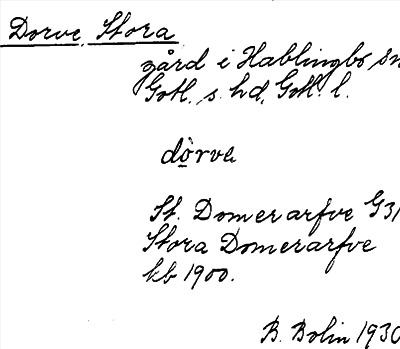 Dorve, Stora
gård i Hablingbo sn
Gotl. s. hd, Gotl. l.
dorve
St. Domerarfve G31
Stora Domerarfve
kb 1900.
B. Bolin 1930